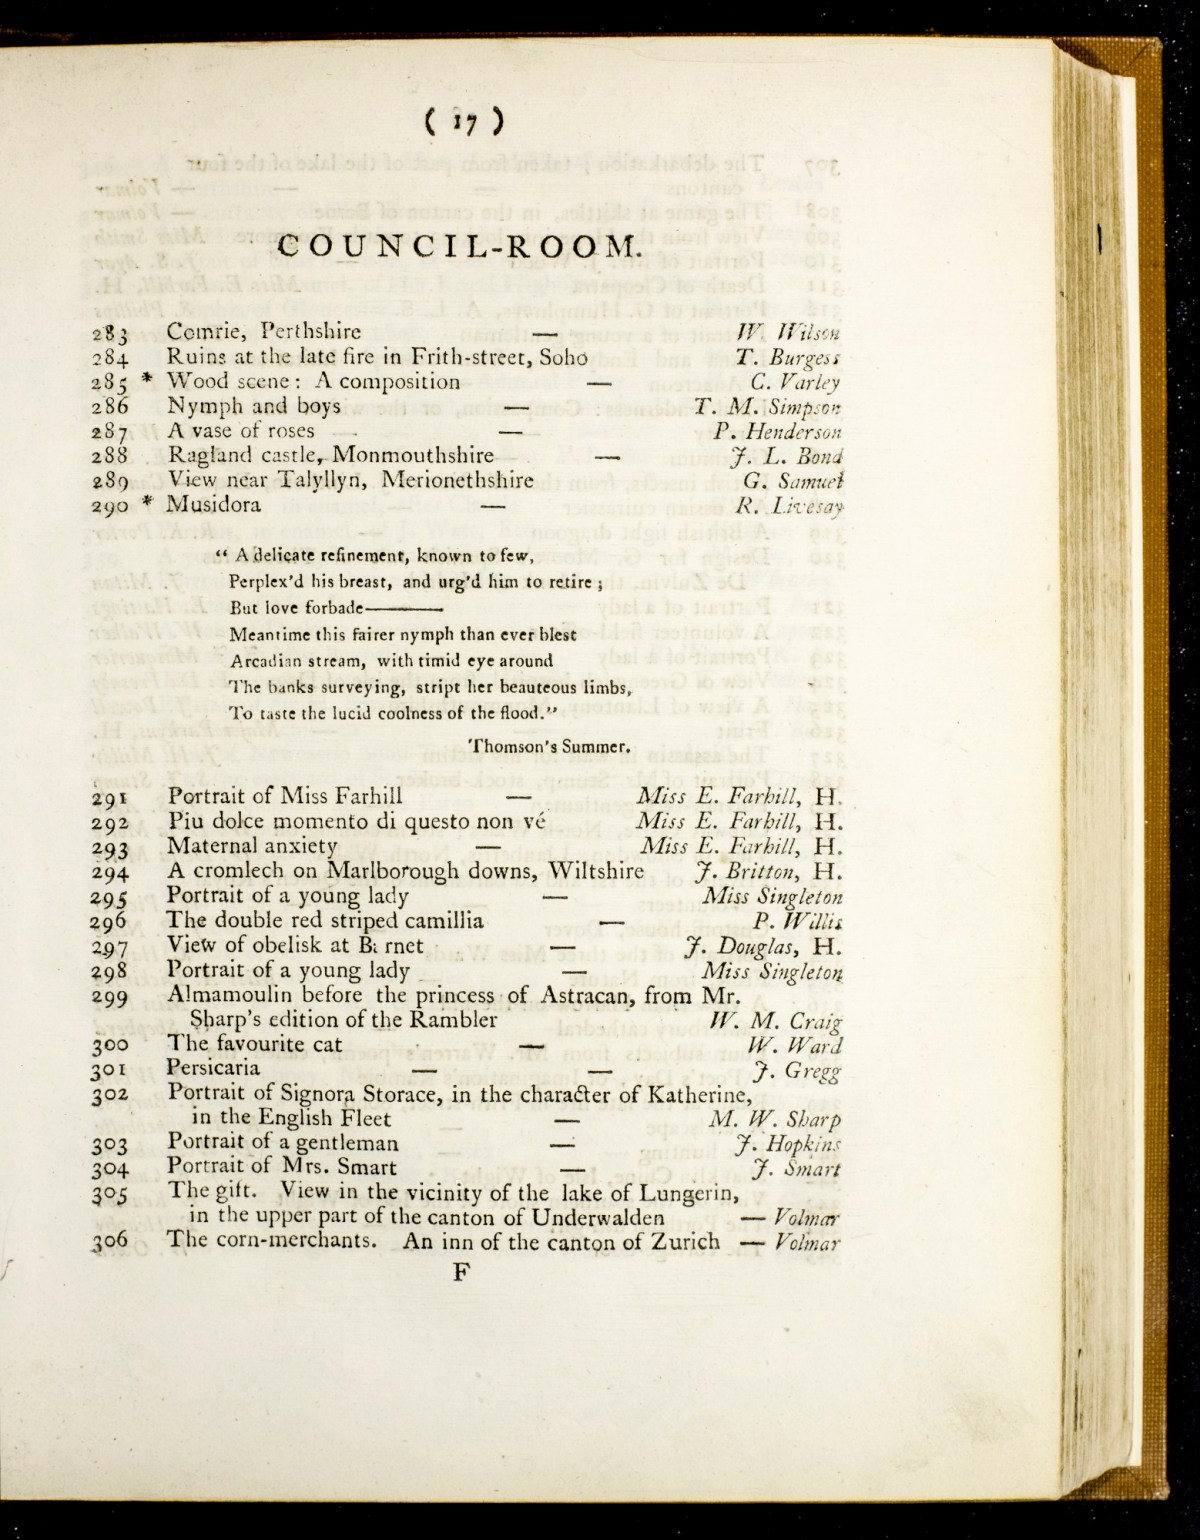 ( 17 )
COUNCIL-ROOM.
283 Comrie, Perthshire — W. Wilson
284 Ruins at the late fire in Frith-street, Soho T. Burgess
285 * Wood scene: A composition — C. Varley
286 Nymph and boys — T. M. Simpson
287 A vase of roses — P. Henderson
288 Ragland castle, Monmouthshire — J. L. Bond
289 View near Talyllyn, Merionethshire G. Samuel
290 * Musidora — R. Livesay
“ A delicate refinement, known to few,
Perplex'd his breast, and urg'd him to retire ;
But love forbade———
Meantime this fairer nymph than ever blest
Arcadian stream, with timid eye around
The banks surveying, stript her beauteous limbs,
To taste the lucid coolness of the flood.”
Thomson's Summer.
291 Portrait of Miss Farhill — Miss E. Farhill, H.
292 Piu dolce momento di questo non vé Miss E. Farhill, H.
293 Maternal anxiety — Miss E. Farhill, H.
294 A cromlech on Marlborough downs, Wiltshire J. Britton, H.
295 Portrait of a young lady — Miss Singleton
296 The double red striped camillia — P. Willis
297 View of obelisk at Barnet — J. Douglas, H.
298 Portrait of a young lady — Miss Singleton
299 Almamoulin before the princess of Astracan, from Mr.
Sharp's edition of the Rambler W. M. Craig
300 The favourite cat — W. Ward
301 Persicaria — — J. Gregg
302 Portrait of Signora Storace, in the character of Katherine,
in the English Fleet — M. W. Sharp
303 Portrait of a gentleman — J. Hopkins
304 Portrait of Mrs. Smart — J. Smart
305 The gift. View in the vicinity of the lake of Lungerin,
in the upper part of the canton of Underwalden — Volmar
306 The corn-merchants. An inn of the canton of Zurich — Volmar
F